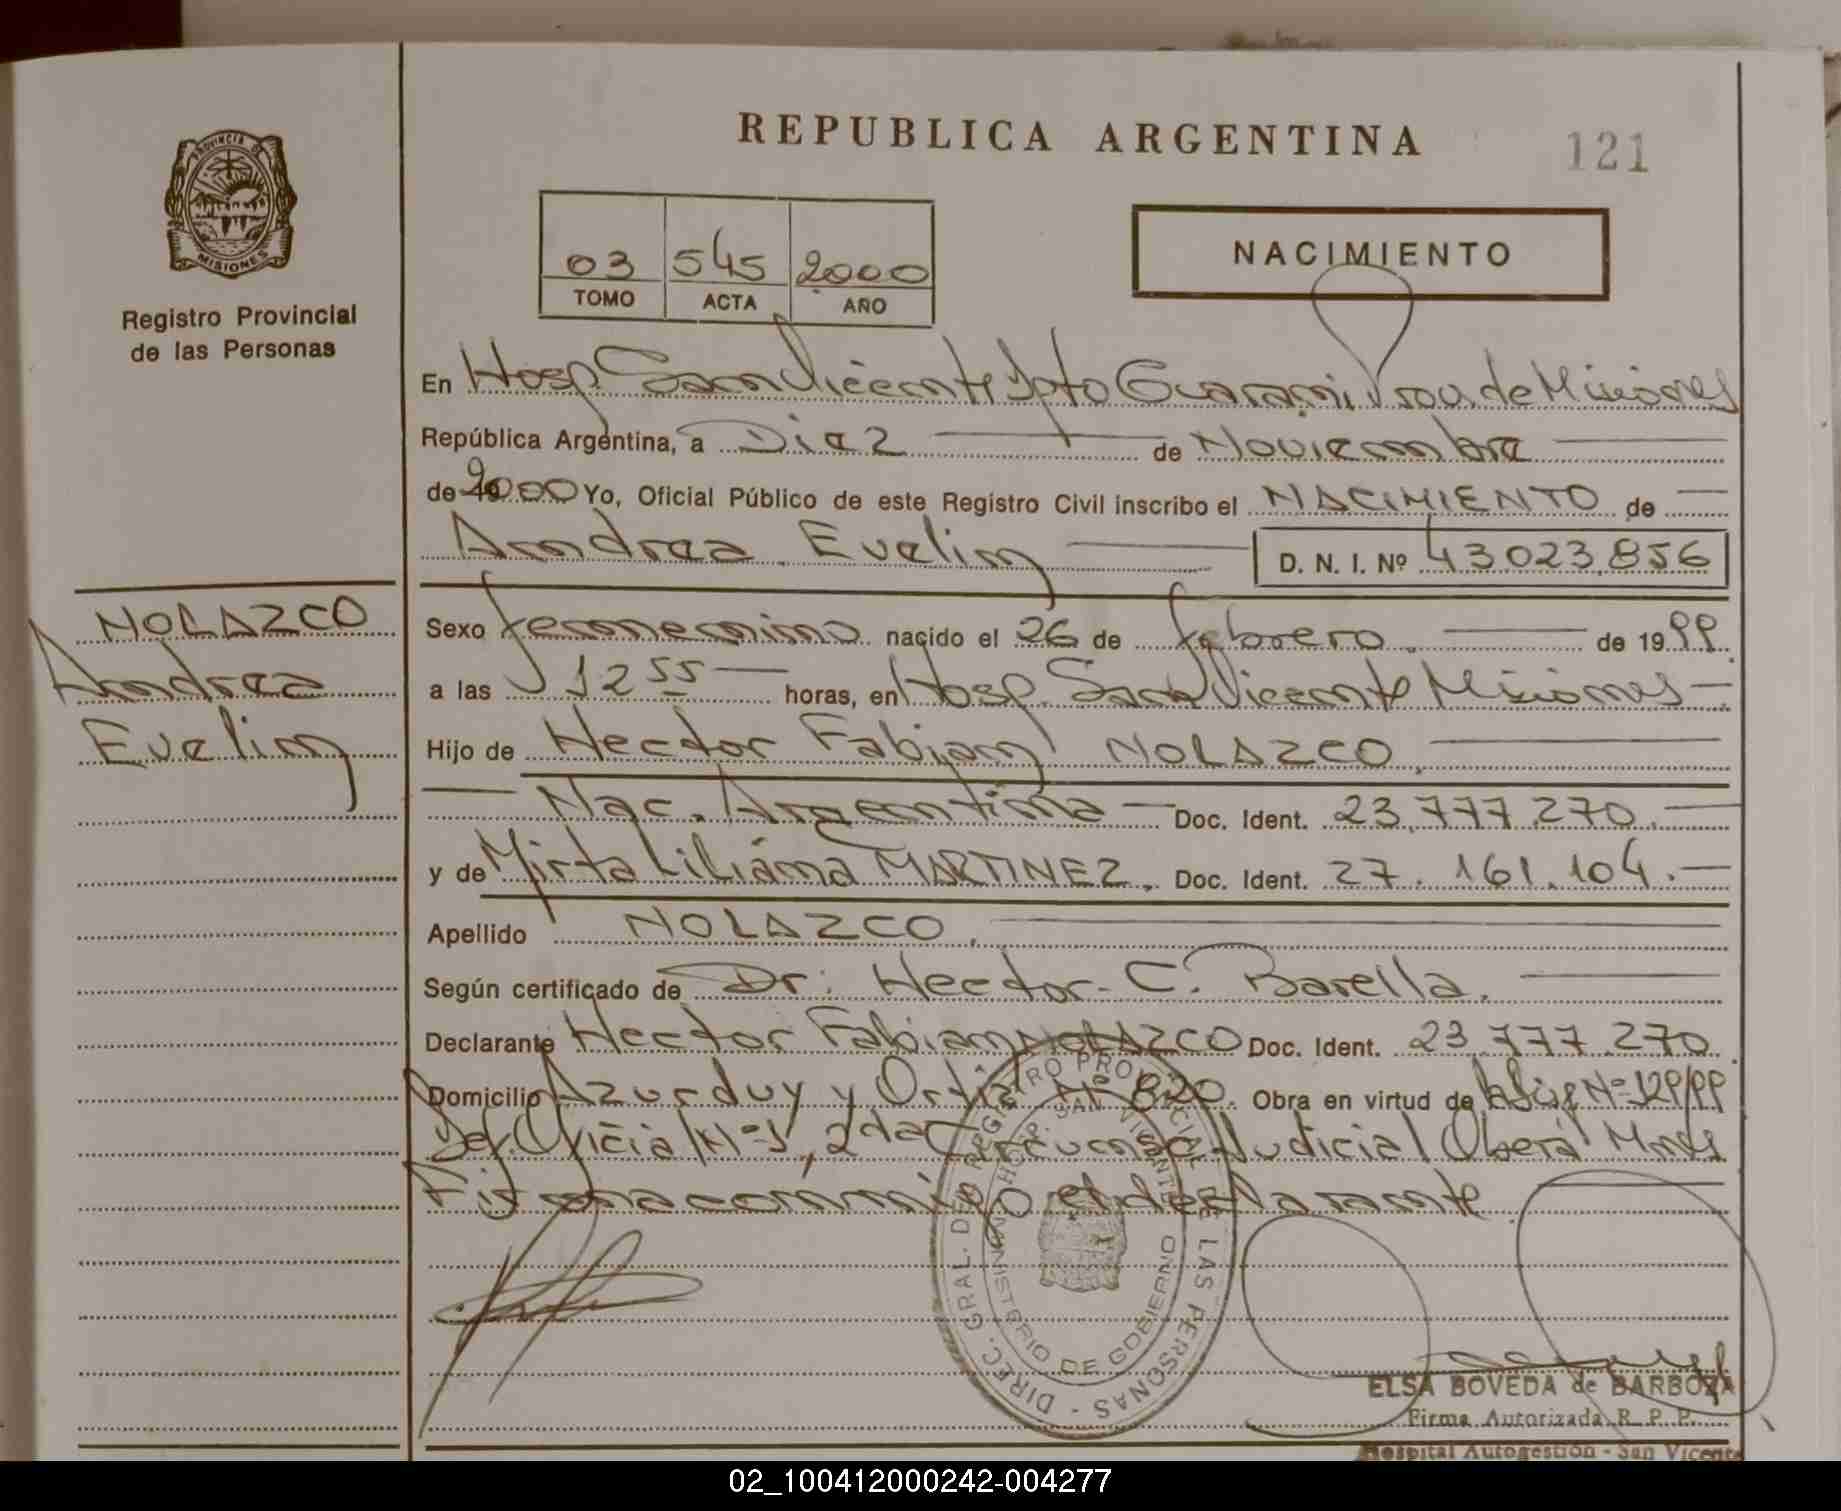 REPUBLICA ARGENTINA
121
PROVINCIA DE
MISIONES
Registro Provincial
de las Personas
03 545 2000
TOMO ACTA AÑO
NACIMIENTO
En Hosp. San Vicente Dpto Guarani Prov. de Misiones
República Argentina, a Diez de Noviembre
de 2000 Yo, Oficial Público de este Registro Civil inscribo el NACIMIENTO de
Andrea Evelin D. N. I. Nº 43.023.856
NOLAZCO
Andrea
Evelin
Sexo femenino nacido el 26 de febrero de 1999
a las 12 55 horas, en Hosp. San Vicente Misiones
Hijo de Hector Fabian NOLAZCO
Nac. Argentina Doc. Ident. 23.777.270.
y de Mirta Liliana MARTINEZ. Doc. Ident. 27.161.104.
Apellido NOLAZCO.
Según certificado de Dr. Hector C. Barella.
Declarante Hector Fabian NOLAZCO Doc. Ident. 23.777.270
Domicilio Azurduy y Ortiz Nº 820. Obra en virtud de Nº 129/99
Def. Oficial Nº 1, 2da Circunsc. Judicial Oberá Mnes
Firma conmigo el declarante
DIREC. GRAL. DEL REGISTRO PROVINCIAL DE LAS PERSONAS -
HOSP. SAN VICENTE
MINISTERIO DE GOBIERNO
ELSA BOVEDA de BARBOZA
Firma Autorizada R. P. P.
Hospital Autogestión - San Vicente
02_100412000242-004277